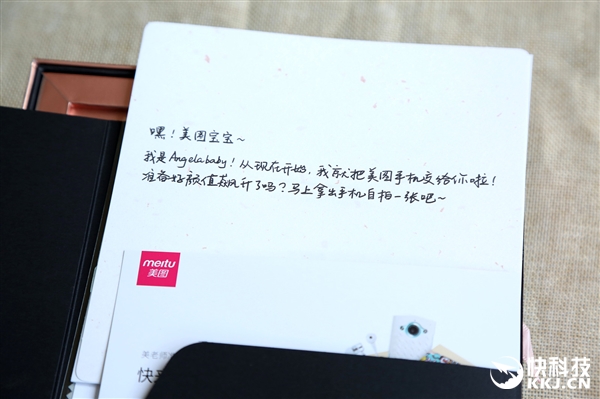 嘿！美图宝宝~
我是Angelababy！从现在开始，我就把美图手机交给你啦！
准备好颜值飙升了吗？马上拿出手机自拍一张吧~
meitu
美图
快科技
KKJ.CN